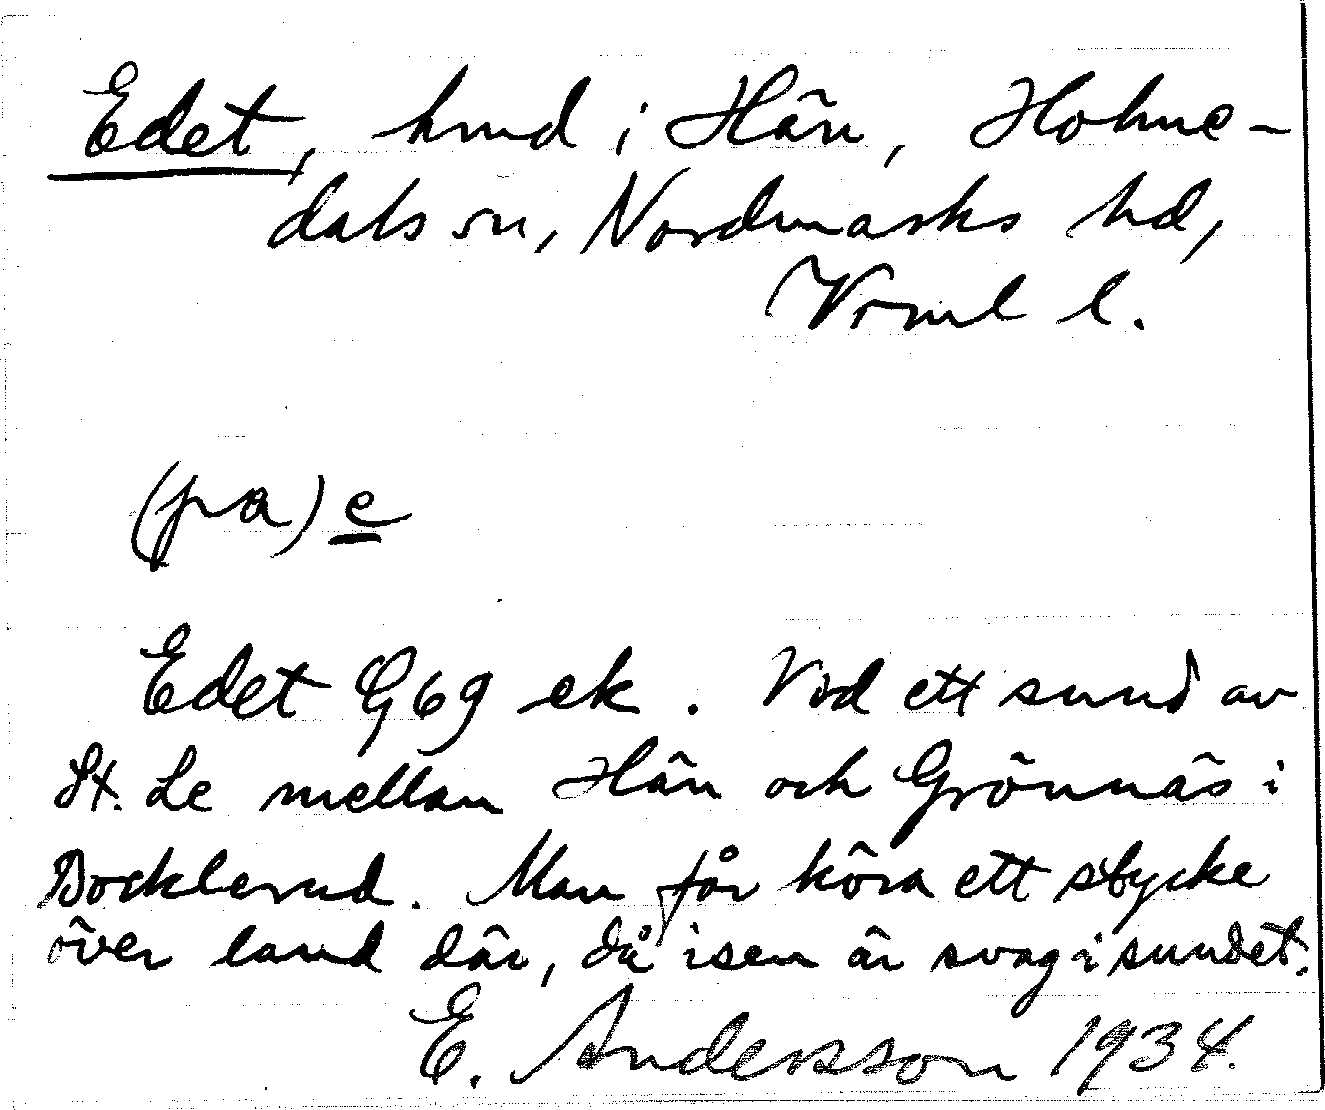 Edet, hmd i Hän, Holme-
dals sn, Nordmarks hd,
Vrml l.
(pa) e
Edet G69 ek. Vid ett sund av
St. Le mellan Hän och Grönnäs i
Bocklerud. Man får köra ett stycke
över land där, då isen är svag i sundet.
E. Andersson 1934.